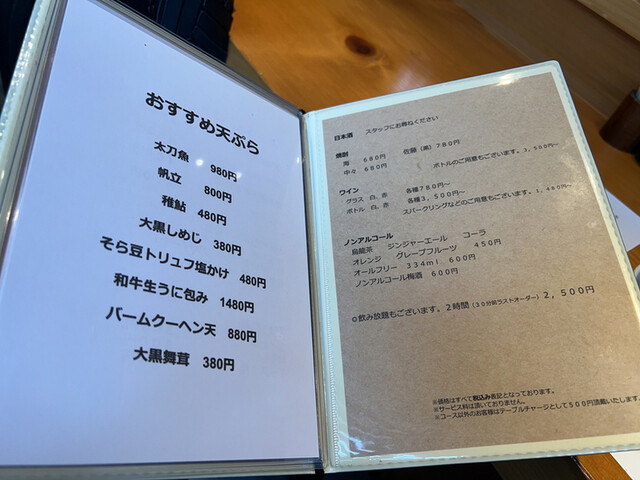 おすすめ天ぷら
太刀魚 980円
帆立 800円
稚鮎 480円
大黒しめじ 380円
そら豆トリュフ塩かけ 480円
和牛生うに包み 1480円
バームクーヘン天 880円
大黒舞茸 380円
日本酒 スタッフにお尋ねください
焼酎
海 680円 佐藤（黒）780円
中々 680円 ボトルのご用意もございます。3,500円～
ワイン
グラス 白、赤 各種780円～
ボトル 白、赤 各種3,500円～
スパークリングなどのご用意もございます。1,480円～
ノンアルコール
烏龍茶 ジンジャーエール コーラ
オレンジ グレープフルーツ 450円
オールフリー 334ml 600円
ノンアルコール梅酒 600円
○飲み放題もございます。2時間（30分前ラストオーダー）2,500円
※価格はすべて税込み表記となっております。
※サービス料は頂いておりません。
※コース以外のお客様はテーブルチャージとして500円頂戴いたします。